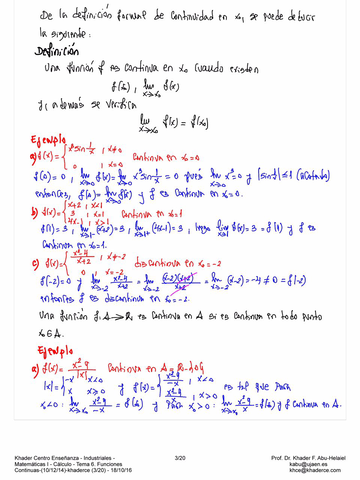 De la definición formal de continuidad en x₀, se puede deducir
la siguiente:
Definición
Una función f es continua en x₀ cuando existen
f(x₀), lim x→x₀ f(x)
y, además se verifica
lim x→x₀ f(x) = f(x₀)
Ejemplo
a) f(x) = { x² sin 1/x , x≠0 ; 0 , x=0 continua en x₀=0
f(0) = 0, lim x→0 f(x) = lim x→0 x² sin 1/x = 0 pues lim x→0 x² = 0 y |sin 1/x| ≤ 1 (acotada)
entonces, f(0) = lim x→0 f(x) y f es continua en x₀=0.
b) f(x) = { x+2, x<1 ; 3, x=1 ; 4x-1, x>1 continua en x₀=1
f(1) = 3, lim x→1⁻ (x+2) = 3, lim x→1⁺ (4x-1) = 3, luego lim x→1 f(x) = 3 = f(1) y f es
continua en x₀=1.
c) f(x) = { x²-4 / x+2 , x≠-2 ; 0 , x=-2 discontinua en x₀=-2
f(-2) = 0 y lim x→-2 x²-4 / x+2 = lim x→-2 (x-2)(x+2) / x+2 = lim x→-2 (x-2) = -4 ≠ 0 = f(-2)
entonces f es discontinua en x₀=-2.
Una función f: A→ℝ es continua en A si es continua en todo punto
x₀∈A.
Ejemplo
a) f(x) = x²-9 / |x| continua en A = ℝ-{0}
|x| = { -x x<0 ; x x≥0 y f(x) = { x²-9 / -x , x<0 ; x²-9 / x , x>0 es tal que para
x₀<0: lim x→x₀ x²-9 / -x = f(x₀) y para x₀>0: lim x→x₀ x²-9 / x = f(x₀) y f continua en A.
Khader Centro Enseñanza - Industriales -
Matemáticas I - Cálculo - Tema 6. Funciones
Continuas-(10/12/14)-khader(260) - 18/10/16
3/20
Prof. Dr. Khader F. Abu-Helaiel
kabu@ujaen.es
khce@khaderce.es